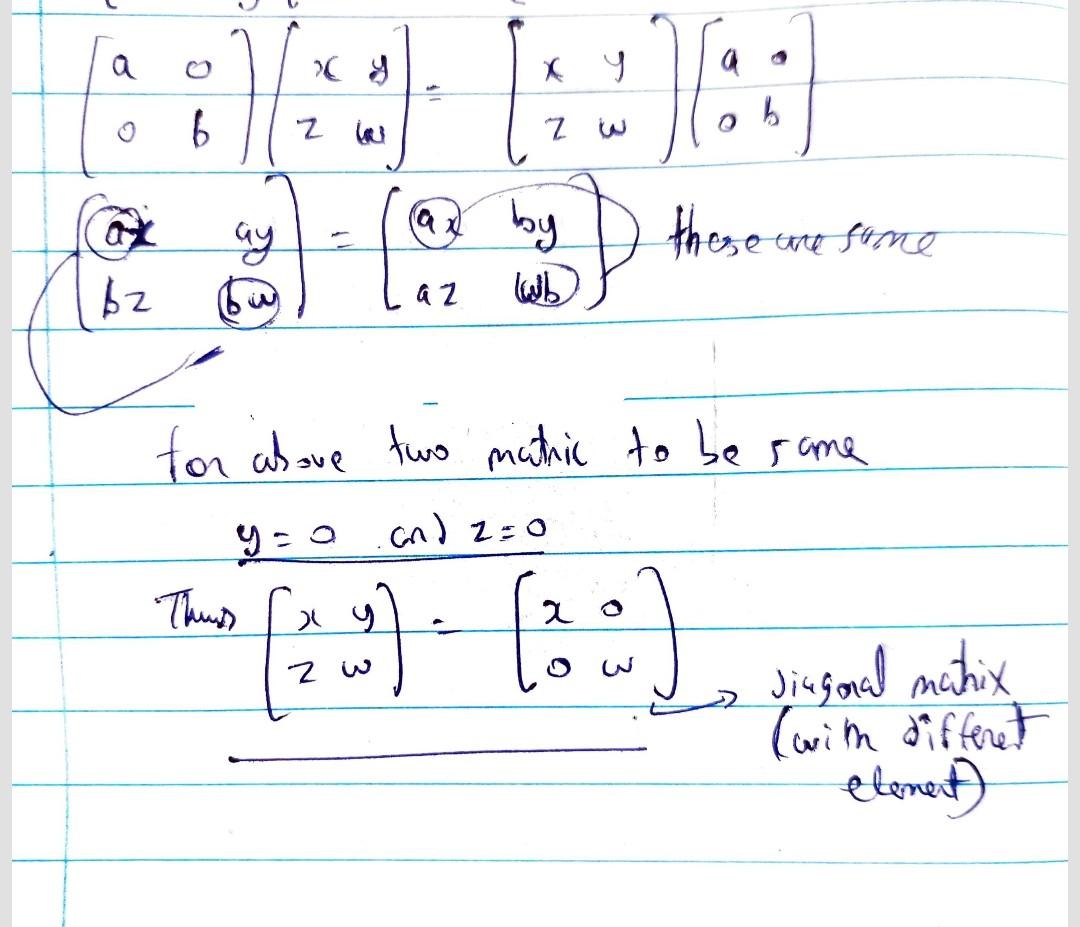 [a 0 0 b] [x y z w] = [x y z w] [a 0 0 b]
[ax ay bz bw] = [ax by az wb] these are same
for above two matric to be same
y = 0 and z = 0
Thus [x y z w] = [x 0 0 w]
diagonal matrix
(with differet
element)